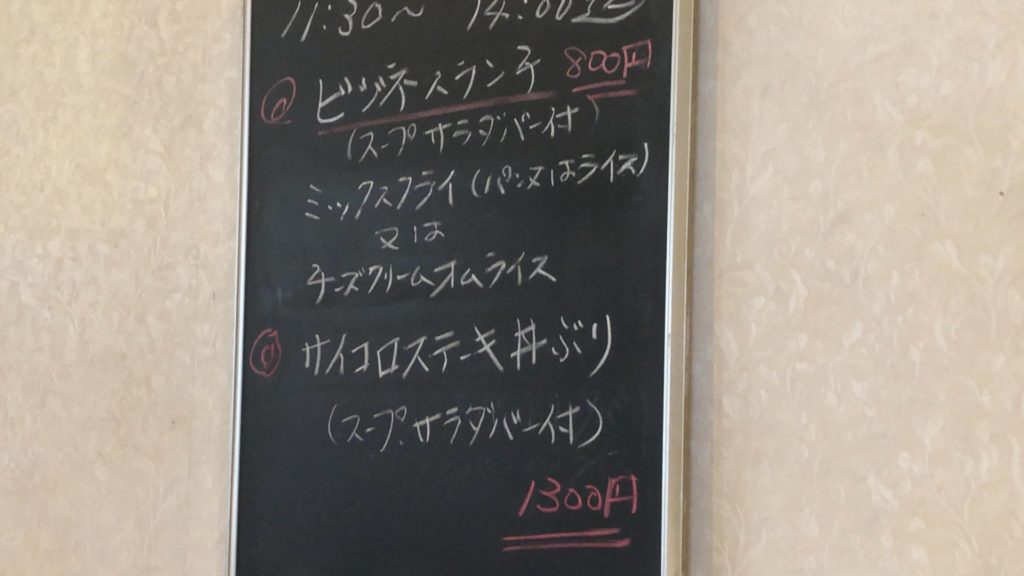 11:30～ 14:00まで
ビジネスランチ 800円
(スープ サラダバー付)
ミックスフライ(パン又はライス)
又は
チーズクリームオムライス
サイコロステーキ丼ぶり
(スープ.サラダバー付)
1300円